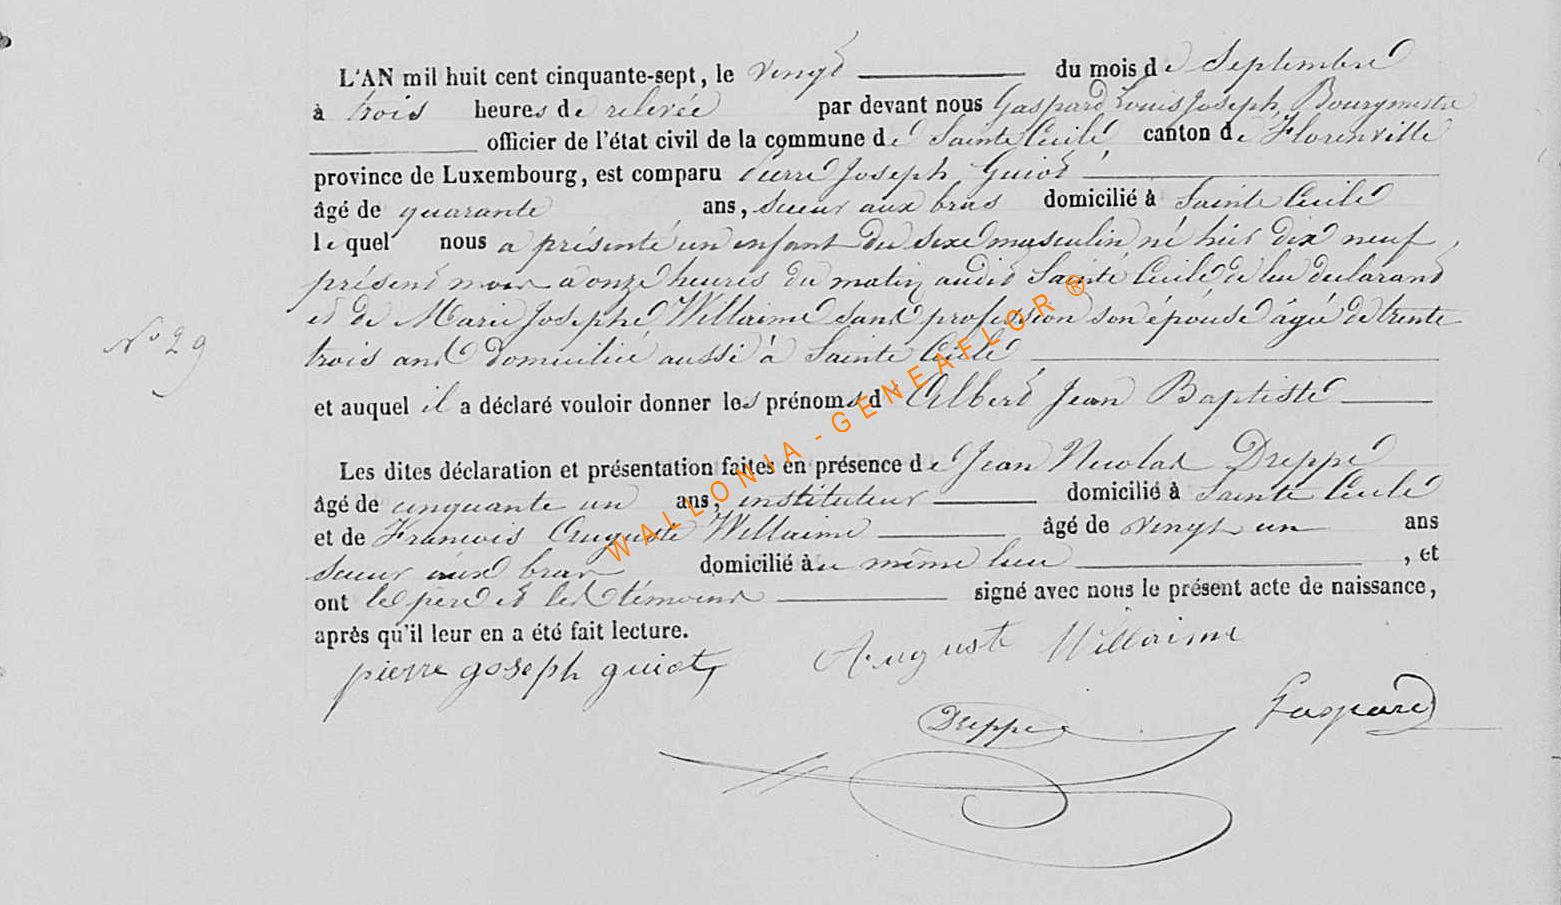 L'AN mil huit cent cinquante-sept, le vingt du mois de Septembre
à trois heures de relevée par devant nous Gaspard Louis Joseph, Bourgmestre
officier de l'état civil de la commune de Sainte Cécile, canton de Florenville
province de Luxembourg, est comparu Pierre Joseph Guiot
âgé de quarante ans, scieur aux bras domicilié à Sainte Cécile
lequel nous a présenté un enfant du sexe masculin né hier dix neuf,
présent mois à onze heures du matin audit Sainte Cécile de lui déclarant
N° 29
et de Marie Josephe Willaime sans profession son épouse âgée de trente
trois ans domiciliée aussi à Sainte Cécile
et auquel il a déclaré vouloir donner les prénoms d' Albert Jean Baptiste
Les dites déclaration et présentation faites en présence de Jean Nicolas Dreppe
âgé de cinquante un ans, instituteur domicilié à Sainte Cécile
et de Francois Auguste Willaime âgé de vingt un ans
scieur aux bras domicilié au même lieu , et
ont le père et les témoins signé avec nous le présent acte de naissance,
après qu'il leur en a été fait lecture.
pierre joseph guiot
Auguste Willaime
Dreppe
Gaspard
WALLONIA - GENEAFLOR ®